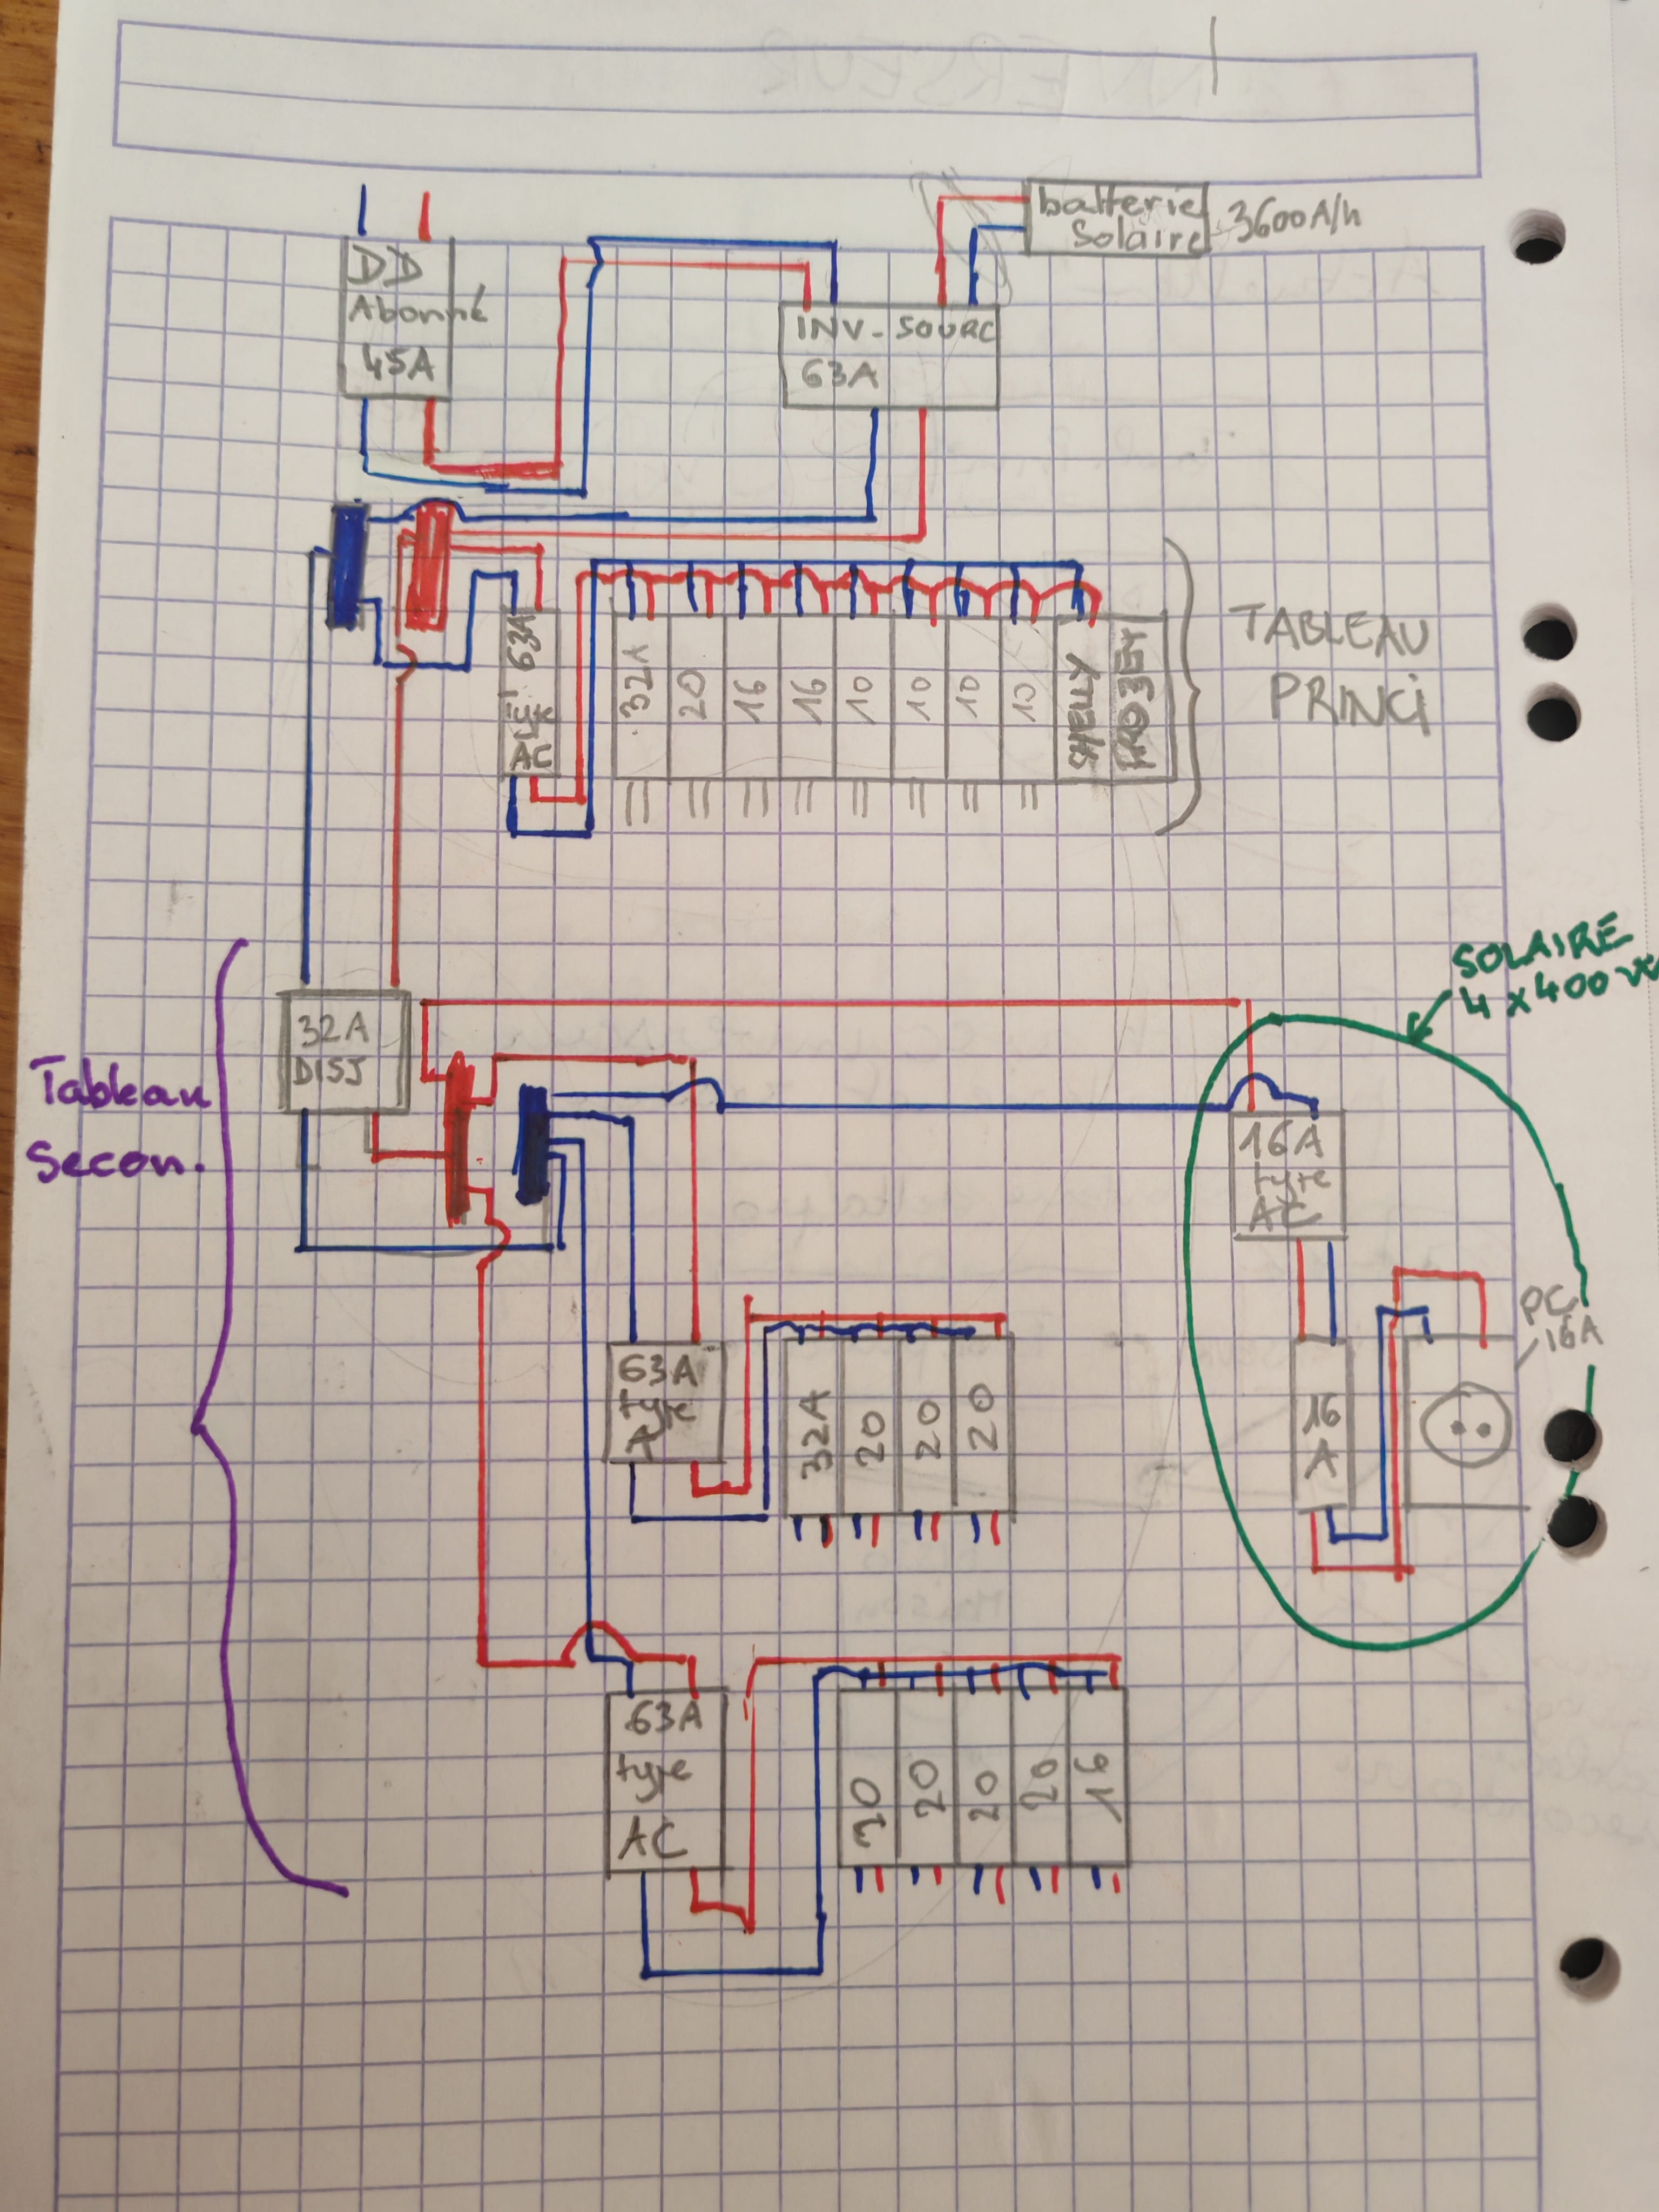 DD
Abonné
45A
batterie
Solaire
3600A/h
INV-SOURC
63A
63A
type
AC
32A
20
16
16
10
10
10
10
SHELLY
PRO 3EM
TABLEAU
PRINCI
SOLAIRE
4 x 400
Tableau
Secon.
32A
DISJ
16A
type
AC
PC
16A
16
A
63A
type
A
32A
20
20
20
63A
type
AC
20
20
20
16